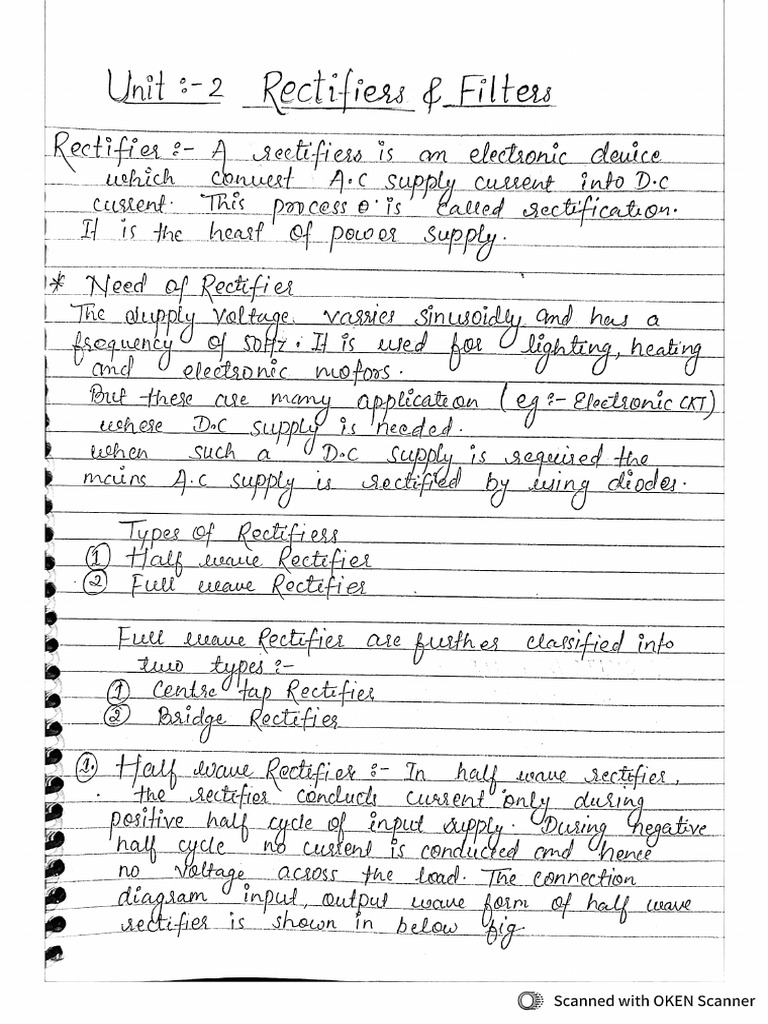 Unit :- 2 Rectifiers & Filters
Rectifier :- A rectifiers is an electronic device
which convert A.C supply current into D.C
current. This process is called rectification.
It is the heart of power supply.
* Need of Rectifier
The supply voltage varries sinusoidly and has a
frequency of 50Hz. It is used for lighting, heating
and electronic motors.
But there are many application (eg :- Electronic CKT)
where D.C supply is needed.
when such a D.C supply is required the
mains A.C supply is rectified by using diodes.
Types of Rectifiers
① Half wave Rectifier
② Full wave Rectifier
Full wave Rectifier are further classified into
two types :-
① Centre tap Rectifier
② Bridge Rectifier
①. Half wave Rectifier :- In half wave rectifier,
the rectifier conducts current only during
positive half cycle of input supply. During negative
half cycle no current is conducted and hence
no voltage across the load. The connection
diagram input, output wave form of half wave
rectifier is shown in below fig.
Scanned with OKEN Scanner